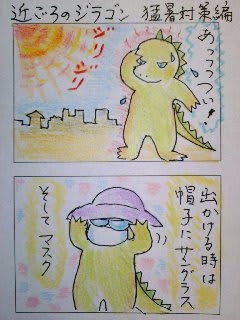 近ごろのジラゴン 猛暑対策編
あっつっつぃ!
ジリ
ジリ
出かける時は
帽子にサングラス
そしてマスク